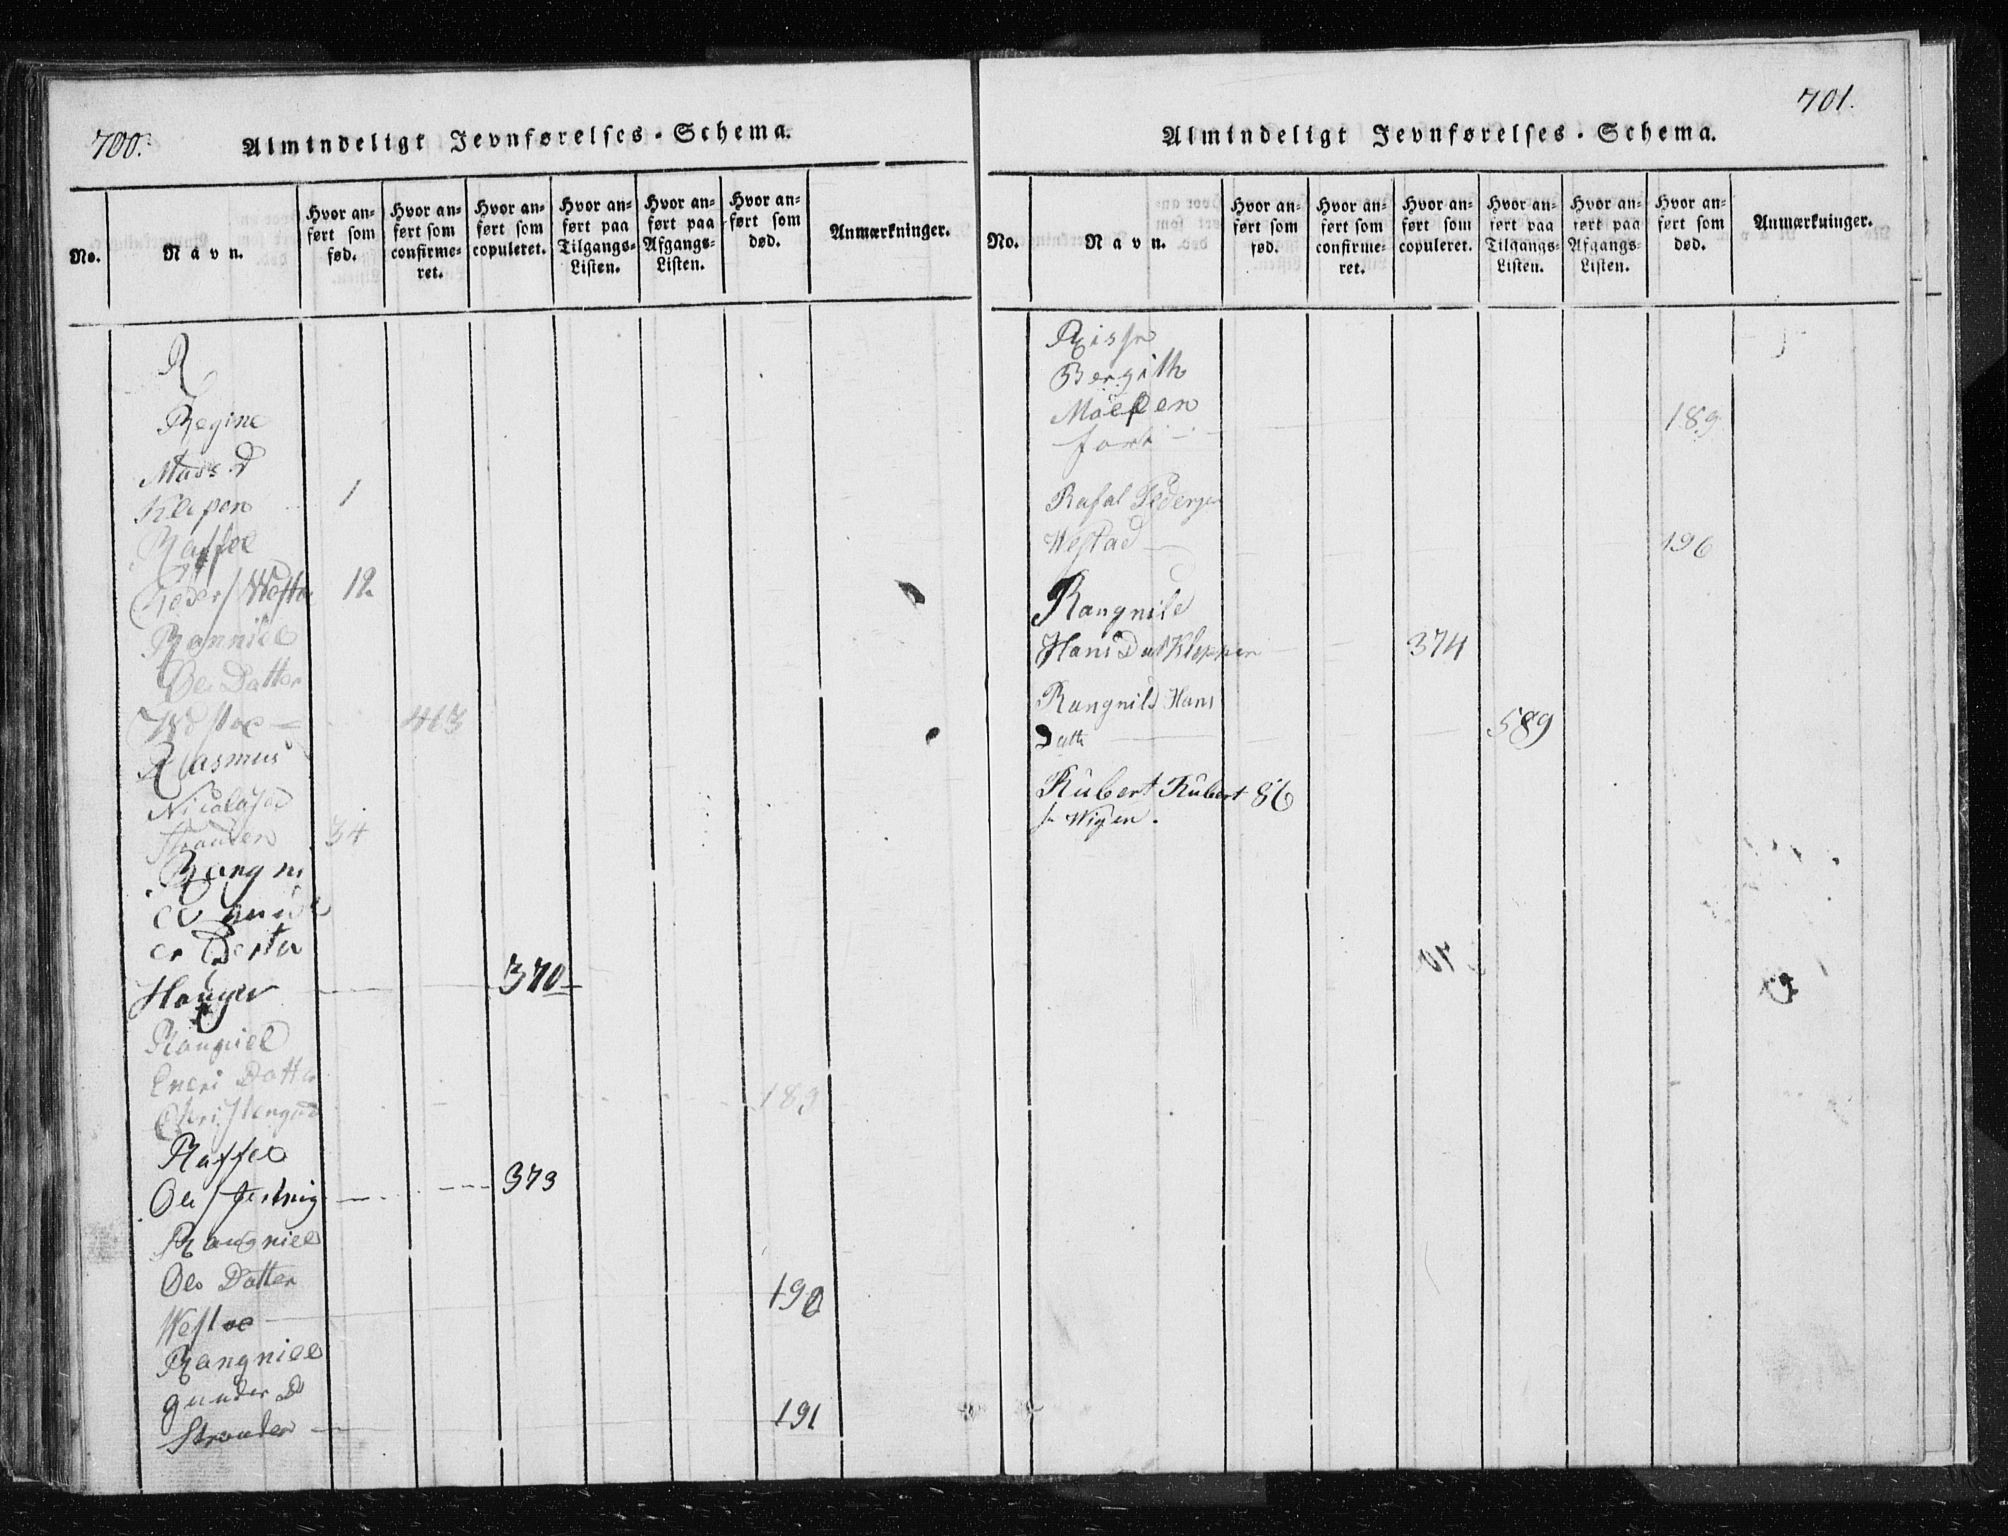 700.
Almindeligt Jevnførelses-Schema.
No.
Navn.
Hvor an-
ført som
fød.
Hvor an-
ført som
confirme-
ret.
Hvor an-
ført som
copuleret.
Hvor an-
ført paa
Tilgangs-
Listen.
Hvor an-
ført paa
Afgangs-
Listen.
Hvor an-
ført som
død.
Anmærkninger.
R
Regine
Mads D
Klepen 1
Raffel
Peders Westa 12
Ranniel
Ole Datter
Westoe 403
Rasmus
Nicolaisen
Stranden 34
Rangni
Haugen 370
Rangniel
Eneri Datter
189
Raffel
Ole 373
Rangniel
Ols Datter
Westoe 190
Rangniel
gunder D
Strander 191
701.
Almindeligt Jevnførelses-Schema.
No.
Navn.
Hvor an-
ført som
fød.
Hvor an-
ført som
confirme-
ret.
Hvor an-
ført som
copuleret.
Hvor an-
ført paa
Tilgangs-
Listen.
Hvor an-
ført paa
Afgangs-
Listen.
Hvor an-
ført som
død.
Anmærkninger.
Bergith
Moepen 189
Rafal Pedersen
Westad 196
Rangnild
Hans Dat Kleppen 374
Rangnild Hans
Datt 589
Rubert Rubert 86
s. Wigen.